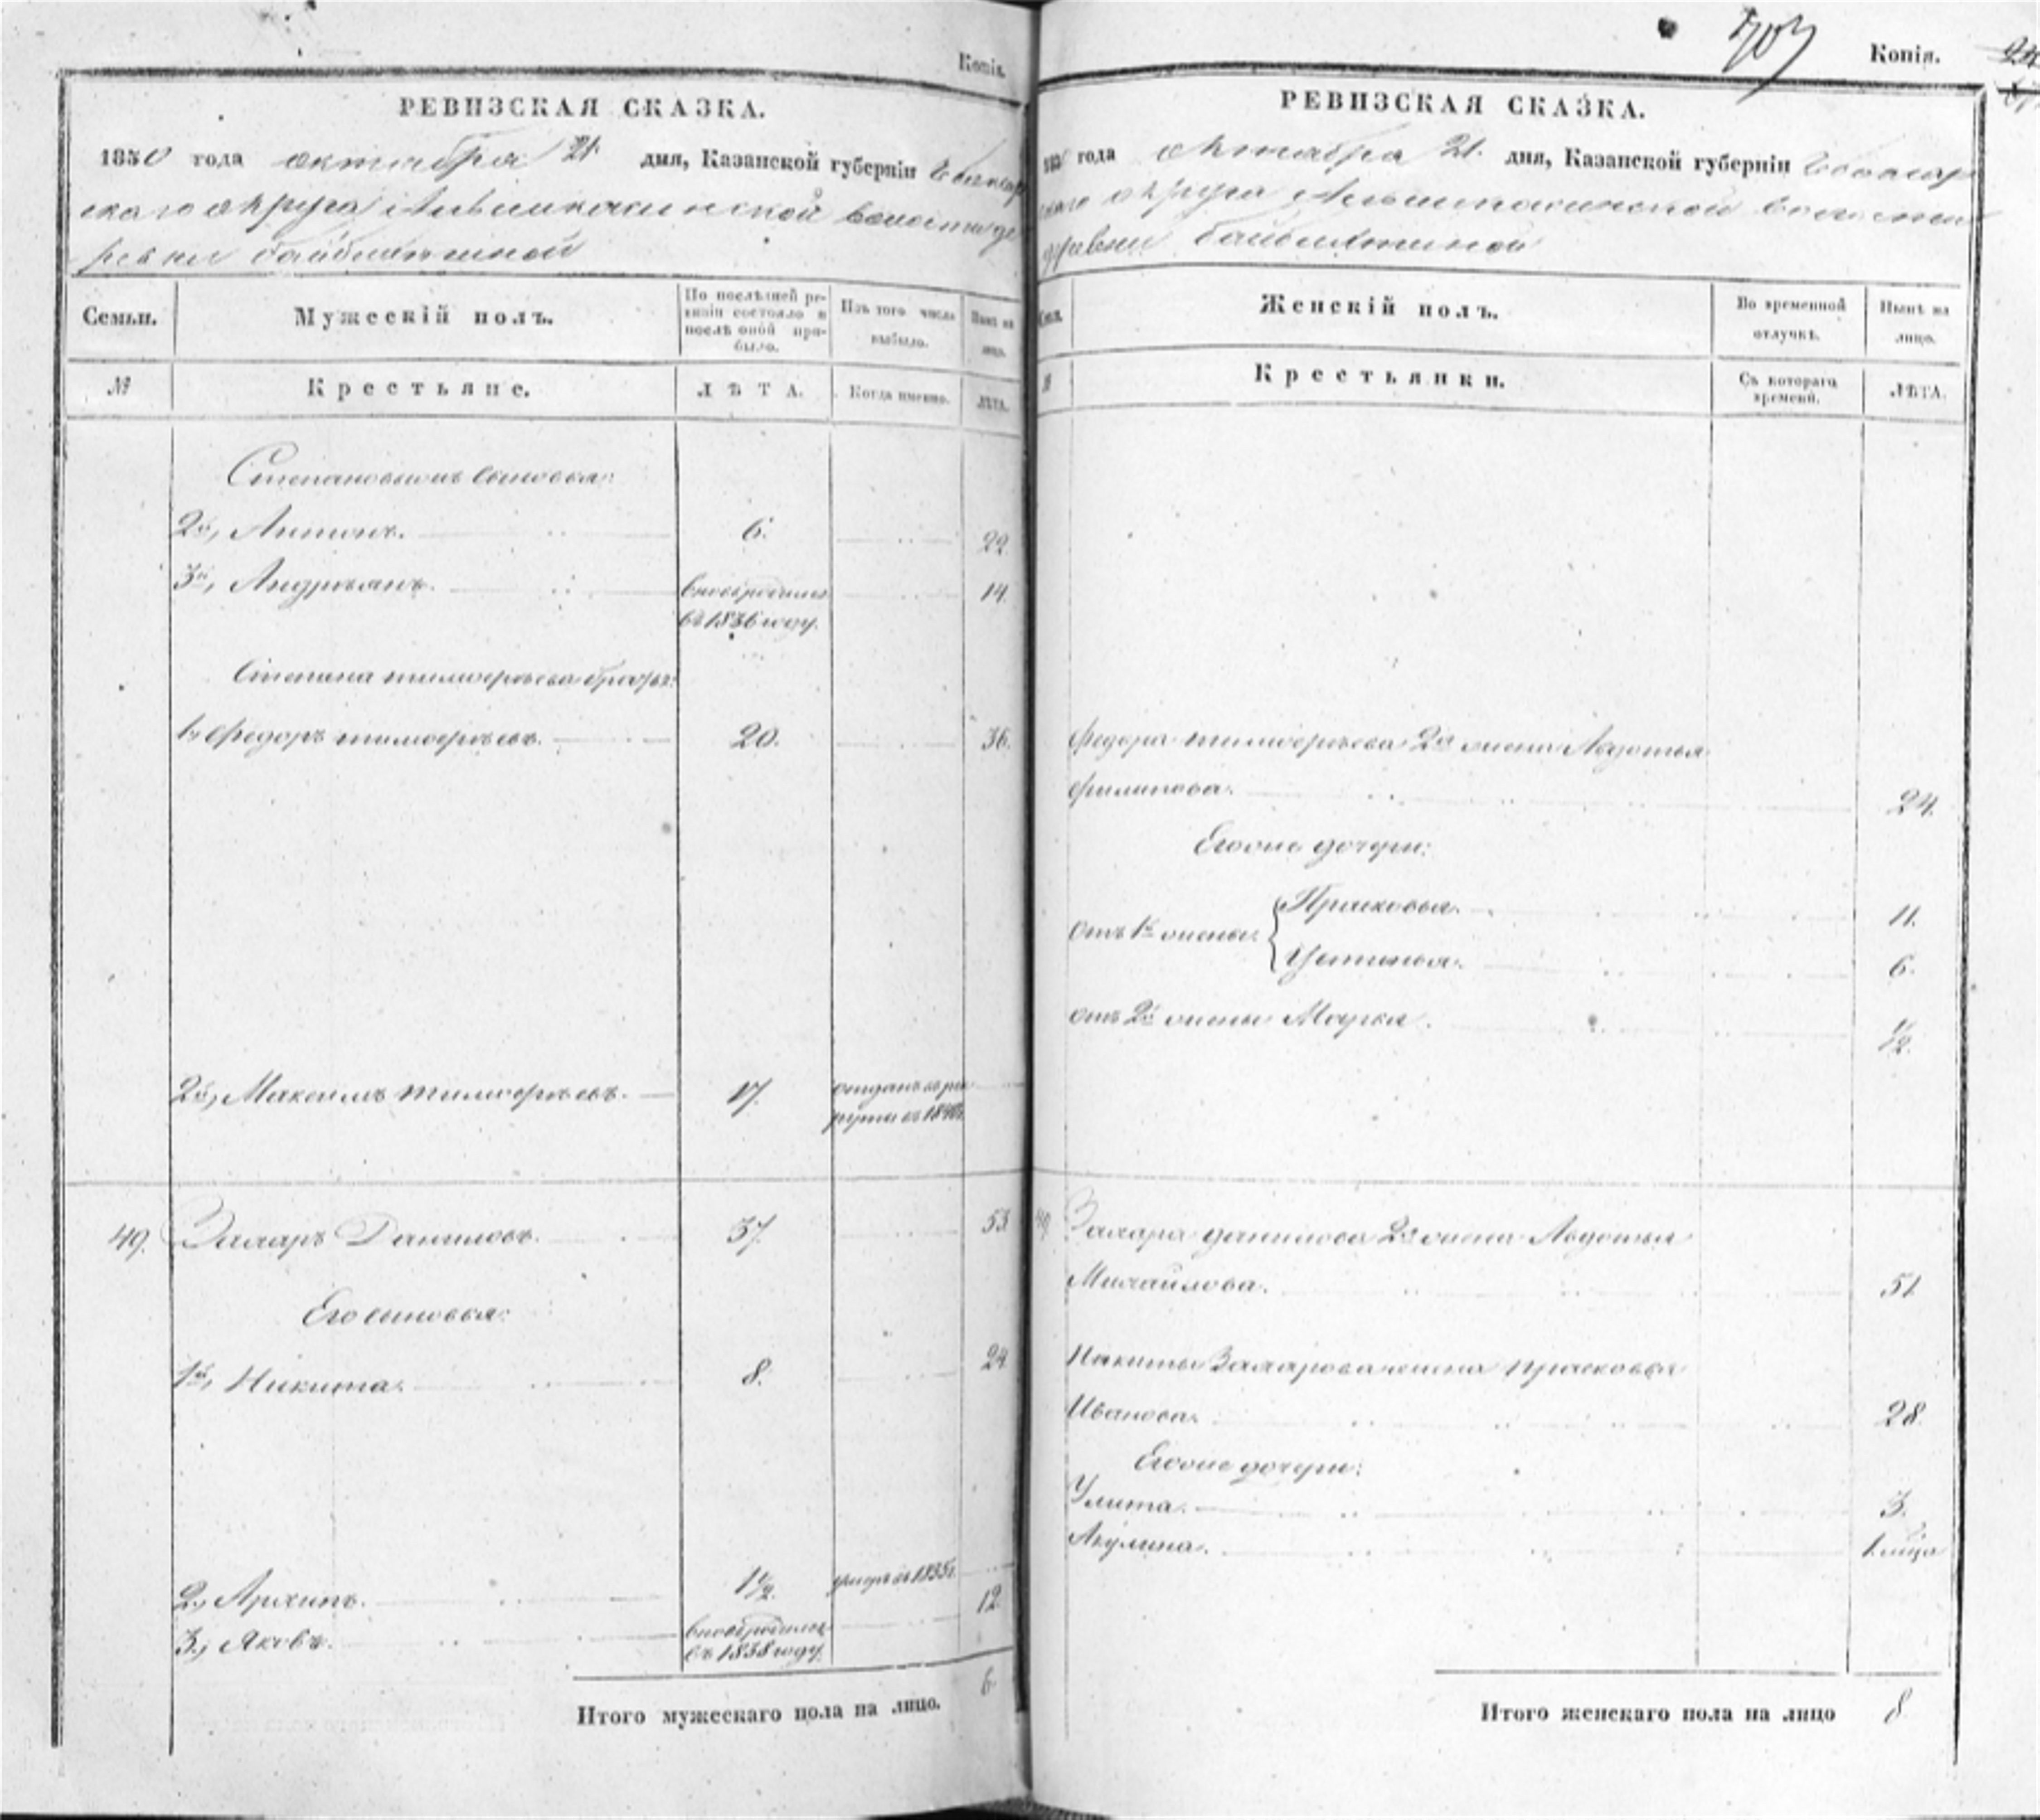 Копія.
РЕВИЗСКАЯ СКАЗКА.
1850 года октября 21 дня, Казанской губерніи Чебоксар
скаго округа волости де
ревни
Семьи. Мужескій полъ. По послѣдней ре-
визіи состояло и
послѣ оной при-
было. Изъ того числа
выбыло. Нынѣ на
лицо.
№ Крестьяне. ЛѢТА. Когда именно. ЛѢТА.
Степановы сыновья:
2й, Антонъ. 6. 22.
3й, Андреянъ. вновьрожденъ 14.
въ 1836 году.
Степана тимофѣева братья:
1, Федоръ тимофѣевъ. 20. 36.
2й, Максимъ тимофѣевъ. 17. отданъ въ ре
круты въ
49. Захаръ Даниловъ. 37. 53
Его сыновья:
1й, Никита. 8. 24
2, Архипъ. 1/2. умеръ въ 1835г.
3, Яковъ. вновьрожденъ 12.
въ 1838 году.
Итого мужескаго пола на лицо. 6.
703 Копія.
РЕВИЗСКАЯ СКАЗКА.
185 года Октября 21. дня, Казанской губерніи Чебоксар
скаго округа волости
деревни
Женскій полъ. Во временной
отлучкѣ. Нынѣ на
лицо.
Крестьянки. Съ котораго
времени. ЛѢТА.
Федора тимофѣева 2я жена Авдотья
Филипова. 24.
Егоже дочери:
отъ 1й жены: Прасковья. 11.
Устинья. 6.
отъ 2й жены Мавра. 1/2.
49 Захара данилова 2я жена Авдотья
Михайлова. 51
Никиты Захарова жена прасковья
Иванова. 28.
Егоже дочери:
Улита. 3.
Акулина.
Итого женскаго пола на лицо 8